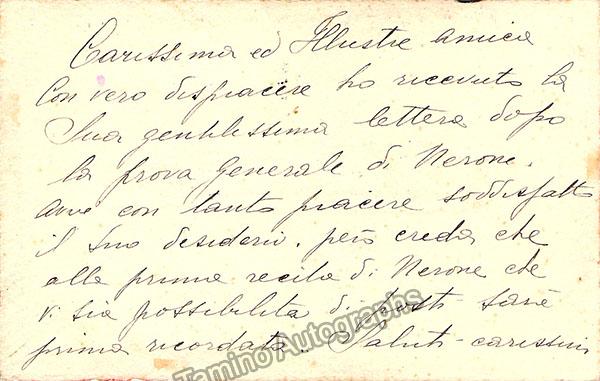 Carissima ed Illustre amica
Con vero dispiacere ho ricevuto la
Sua gentilissima lettera dopo
la prova generale di Nerone.
avrei con tanto piacere soddisfatto
il suo desiderio. però creda che
alla prima recita di Nerone che
vi sia possibilità di posti sarà
prima ricordata. Saluti carissimi
Tamino Autographs